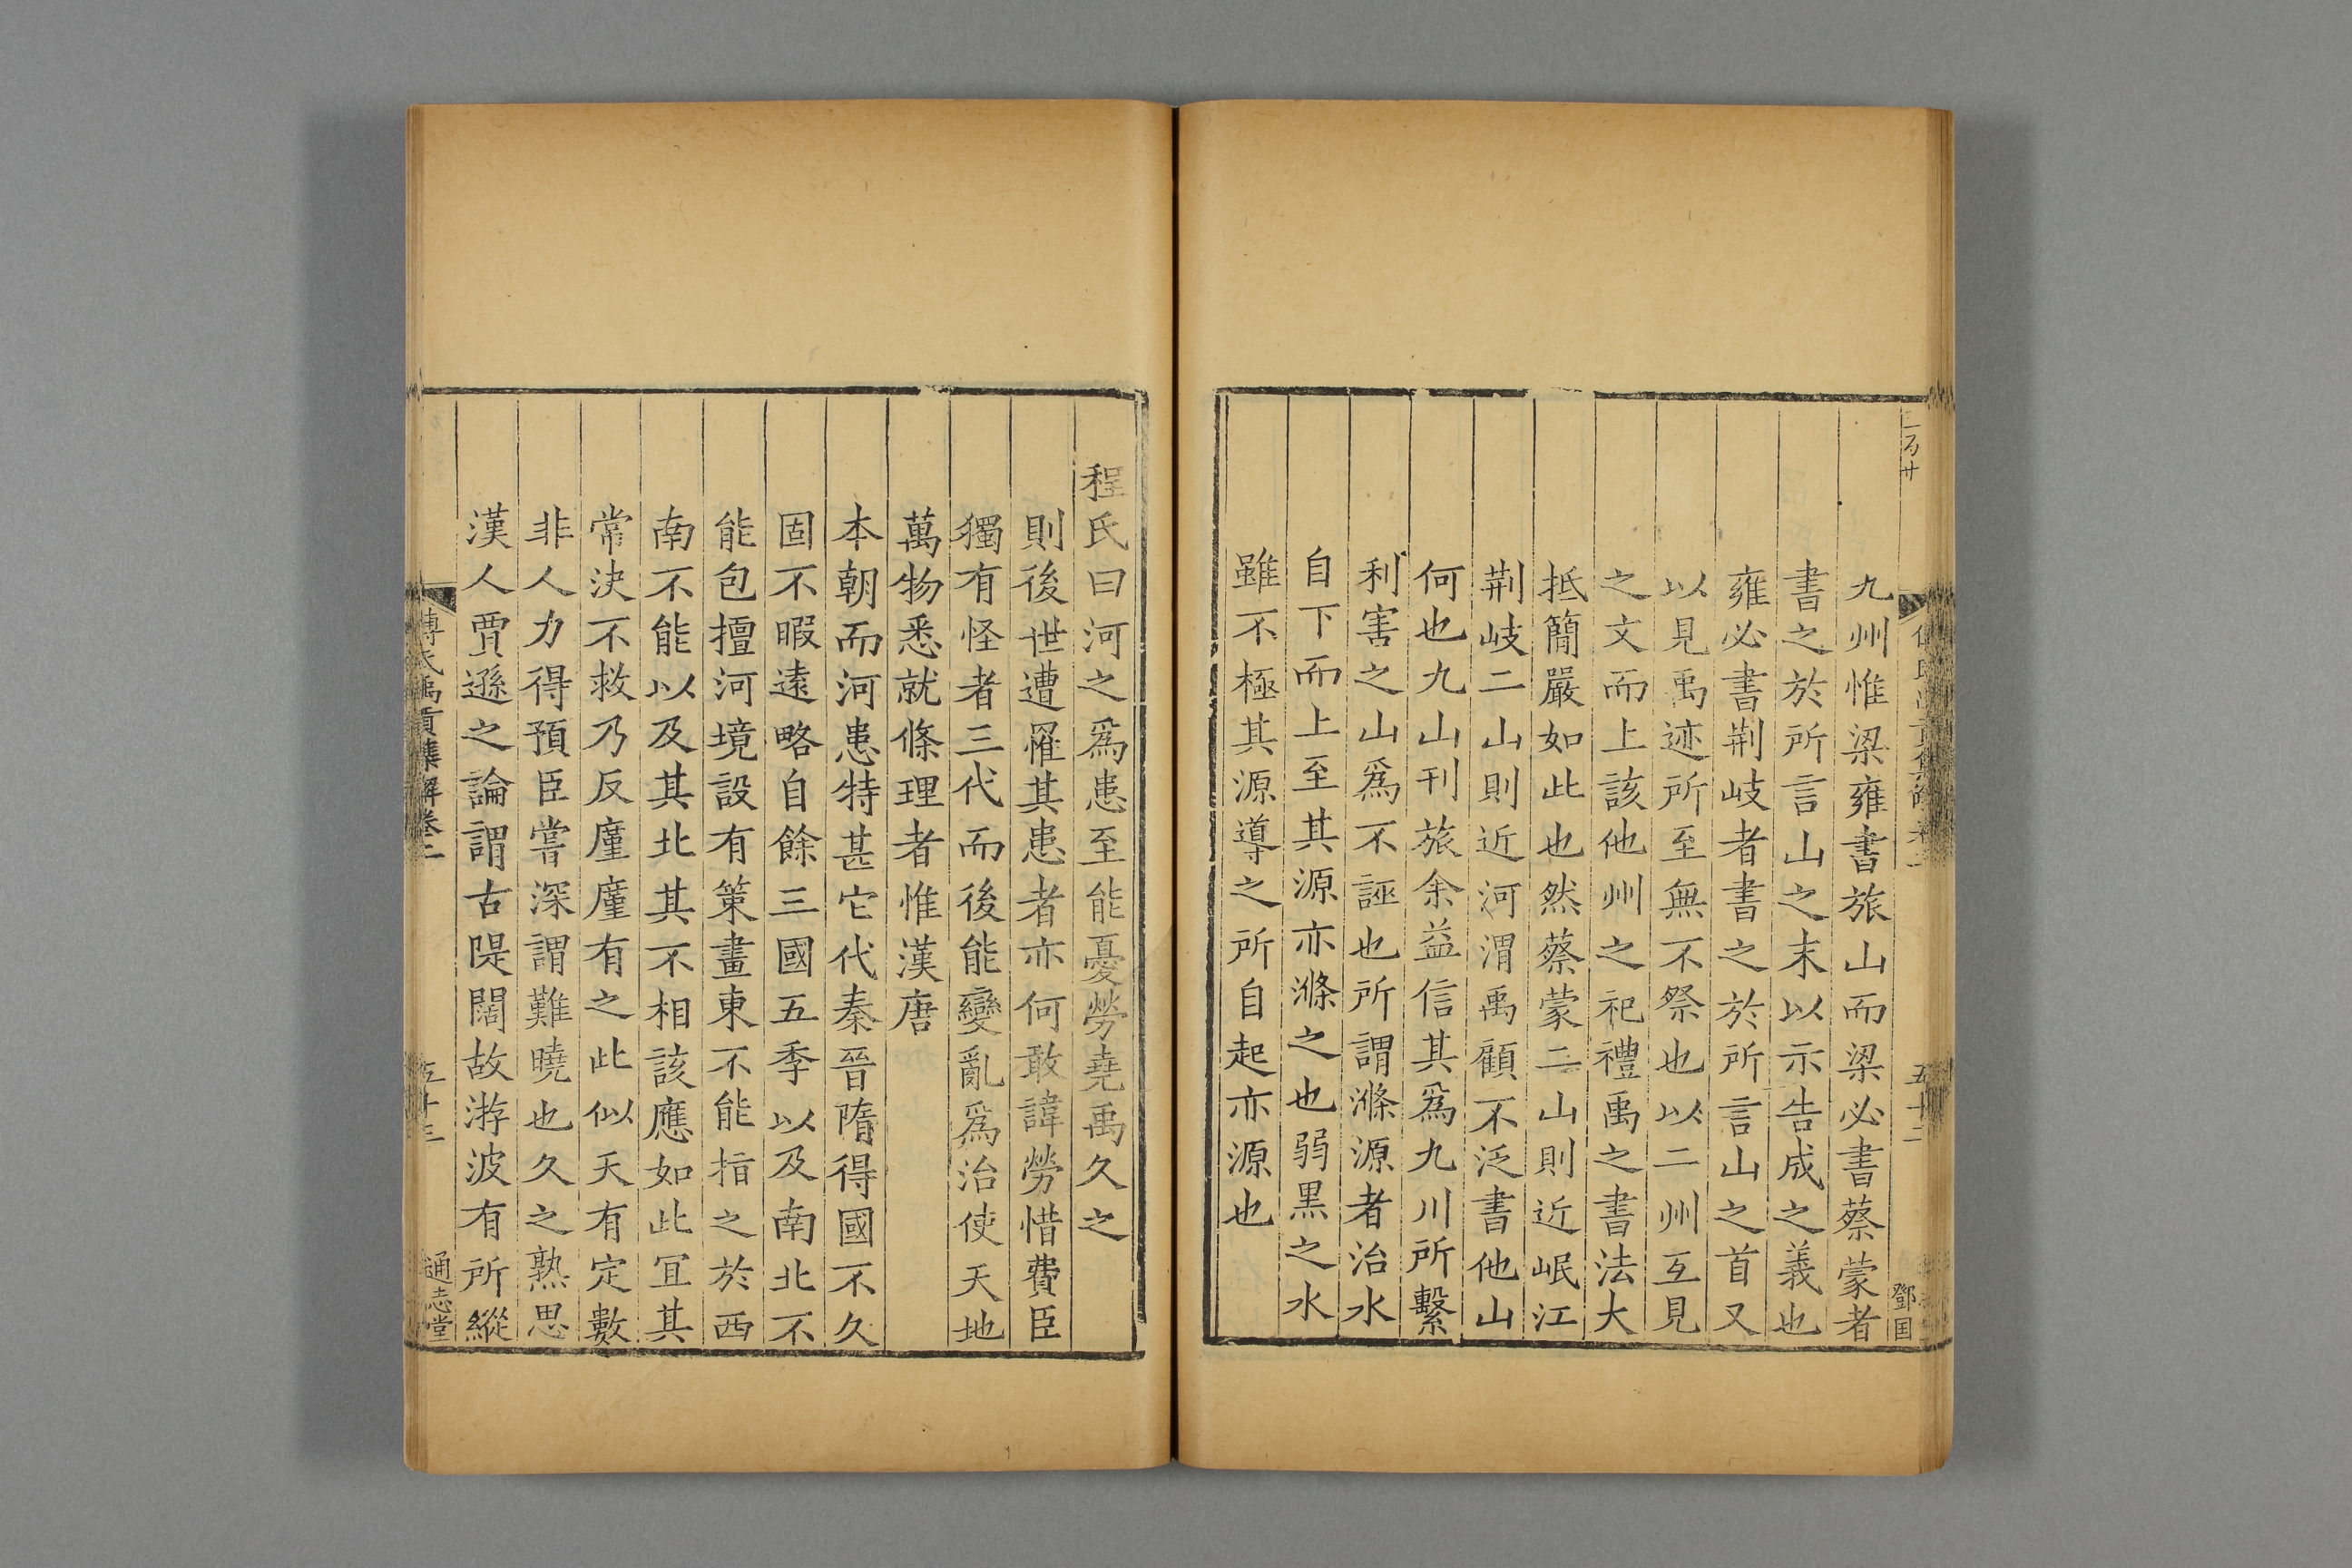 九州惟梁雍書旅山而梁必書蔡蒙者
書之於所言山之末以示告成之義也
雍必書荆岐者書之於所言山之首又
以見禹迹所至無不祭也以二州互見
之文而上該他州之祀禮禹之書法大
抵簡嚴如此也然蔡蒙二山則近岷江
荆岐二山則近河渭禹顧不泛書他山
何也九山刊旅余益信其爲九川所繫
利害之山爲不誣也所謂滌源者治水
自下而上至其源亦滌之也弱黑之水
雖不極其源導之所自起亦源也
程氏曰河之爲患至能憂勞堯禹久之
則後世遭罹其患者亦何敢諱勞惜費臣
獨有怪者三代而後能變亂爲治使天地
萬物悉就條理者惟漢唐
本朝而河患特甚它代秦晉隋得國不久
固不暇遠略自餘三國五季以及南北不
能包擅河境設有策畫東不能指之於西
南不能以及其北其不相該應如此宜其
常決不救乃反廑廑有之此似天有定數
非人力得預臣嘗深謂難曉也久之熟思
漢人賈遜之論謂古隄闊故游波有所縱
傅氏禹貢集解卷二
五十三
通志堂